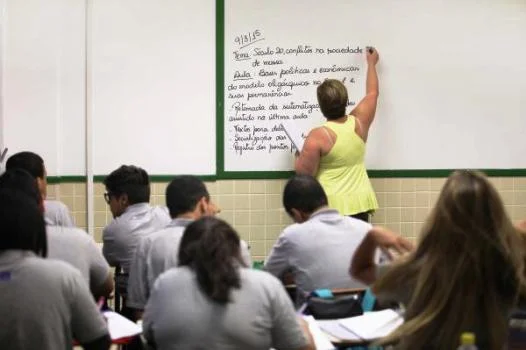 9/3/15
Tema: Século 20, conflitos na sociedade
de massa
Aula: Bases políticas e econômicas
do modelo oligárquico na
suas permanências.
- Retomada da sistematização
na última aula
- Textos para
- Socialização das
- Registro dos pontos